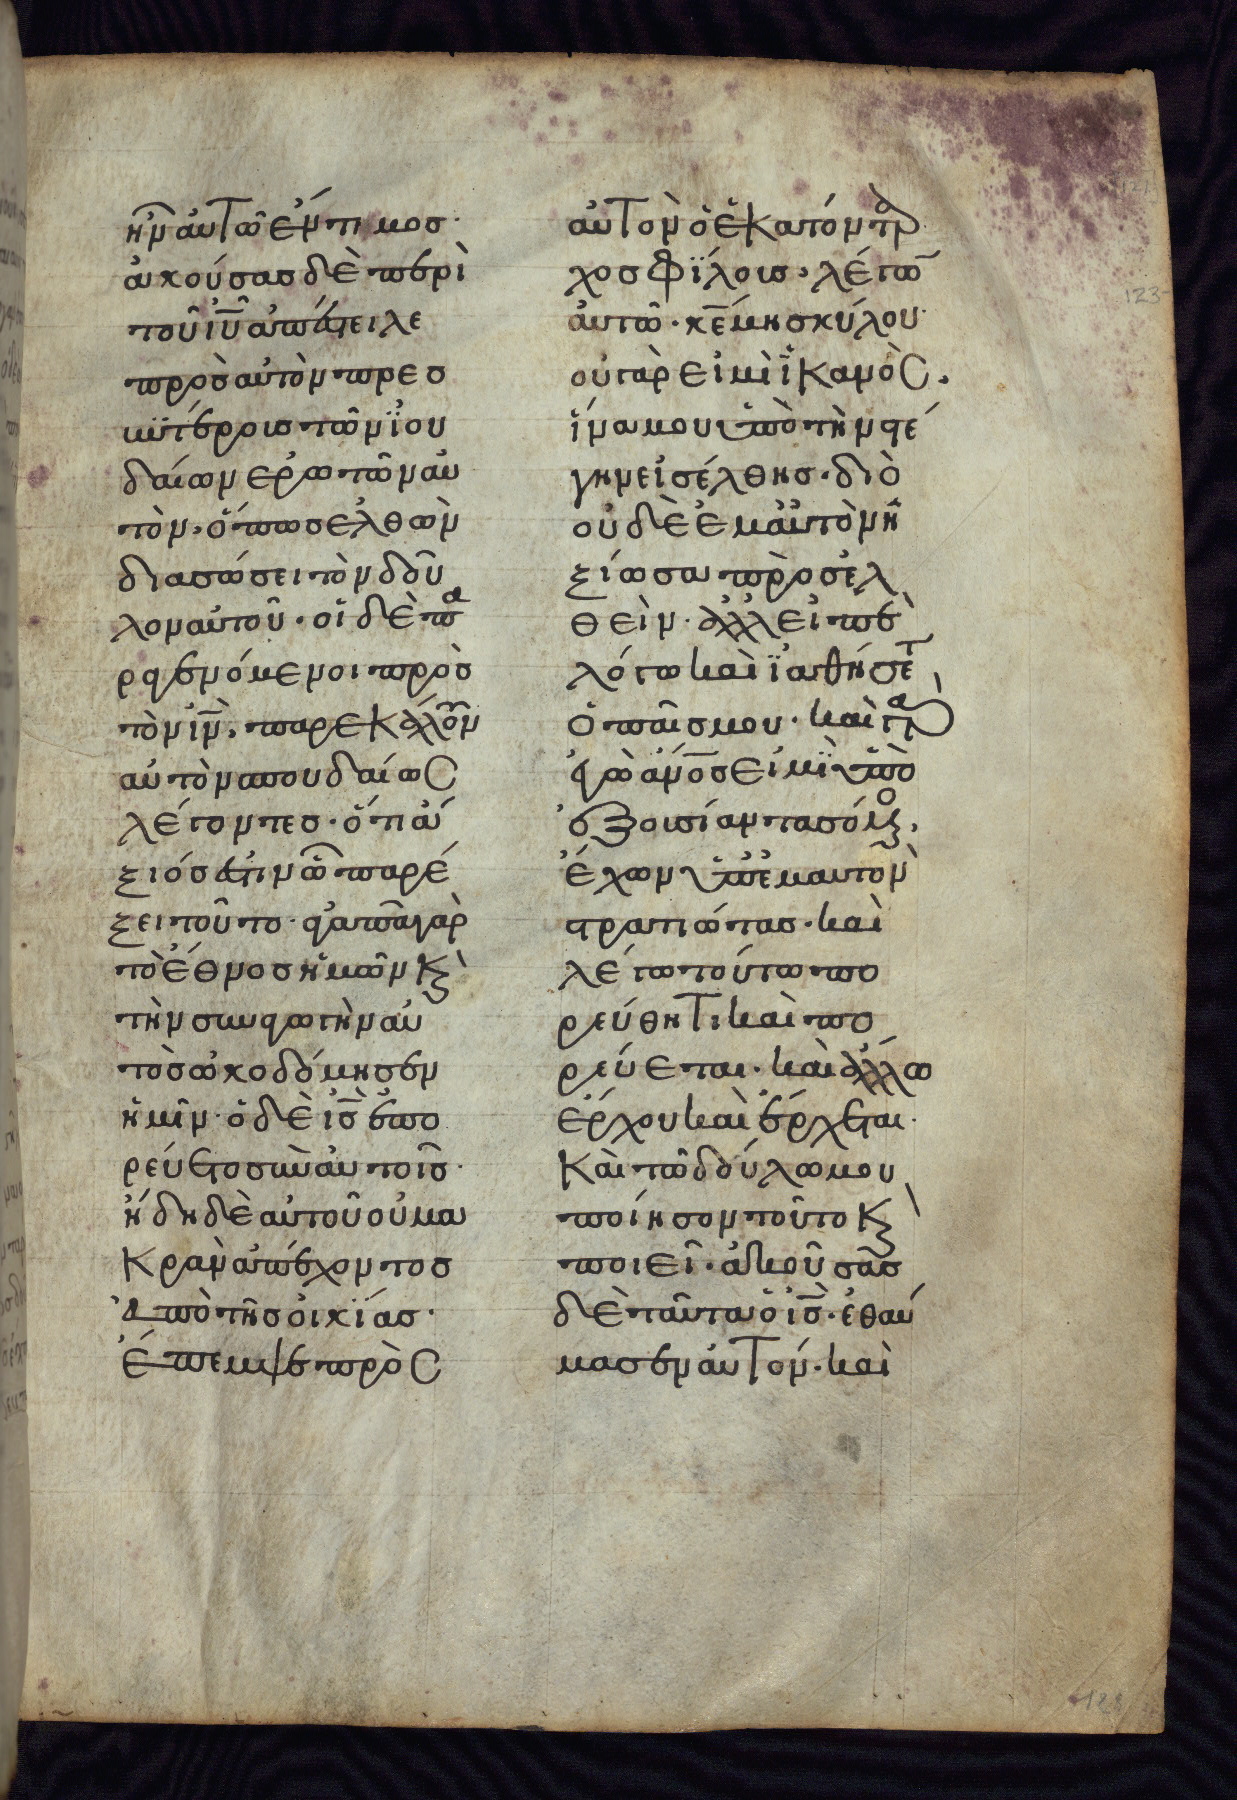 ἦν αὐτῶ ἔντιμοσ·
ἀκούσασ δὲ περὶ
τοῦ ἰῦ ἀπέστειλε
προσ αὐτὸν πρεσ
βϋτέρουσ τῶν ϊου
δαίων ἐρωτῶν αὐ
τὸν, ὅπωσ ἐλθὼν
διασώσει τὸν δοῦ
λον αὐτοῦ· οἱ δὲ πα
ραγενόμενοι πρὸσ
τὸν ἰν, παρεκάλουν
αὐτὸν σπουδαίωσ
λέγοντεσ· ὅτι ἄ
ξιόσ ἐστιν ὧ παρέ
ξει τοῦτο· ἀγαπᾶ γὰρ
τὸ ἔθνοσ ἡμῶν κὶ
τὴν συναγωγὴν αὐ
τὸσ ὠκοδόμησεν
ἡμῖν· ὁ δὲ ἰσ ἐπο
ρεύετο σὺν αὐτοῖσ·
ἤδη δὲ αὐτοῦ οὐ μα
κρὰν ἀπέχοντοσ
ἀπὸ τῆσ οἰκίασ·
ἔπεμψε πρὸσ
αὐτὸν ὁ ἑκατόνταρ
χοσ φίλουσ, λέγων
αὐτῶ· κε μὴ σκύλου·
οὐ γάρ εἰμὶ ϊκανὸσ,
ἵνα μου ὑπὸ τὴν στέ
γην εἰσέλθησ· διὸ
οὐδὲ ἐμαὐτὸν ἠ
ξίωσα πρὸσ σὲ ἐλ
θεῖν· ἀλλ εἰπὲ
λόγω καὶ ϊαθήσετ
ὁ παῖσ μου· καὶ γὰρ
ἐγὼ ἄνοσ εἰμὶ ὑπὸ
ἐξουσίαν τασσόμενοσ,
ἔχων ὑπ ἐμαυτὸν
στρατιώτασ· καὶ
λέγω τούτω πο
ρεύθητι καὶ πο
ρεύεται· καὶ ἄλλω
ἔρχου καὶ ἔρχεται·
καὶ τῶ δούλω μου
ποίησον τοῦτο κὶ
ποιεῖ· ἀκούσασ
δὲ ταῦτα ὁ ἰσ· ἐθαύ
μασεν αὐτόν· καὶ